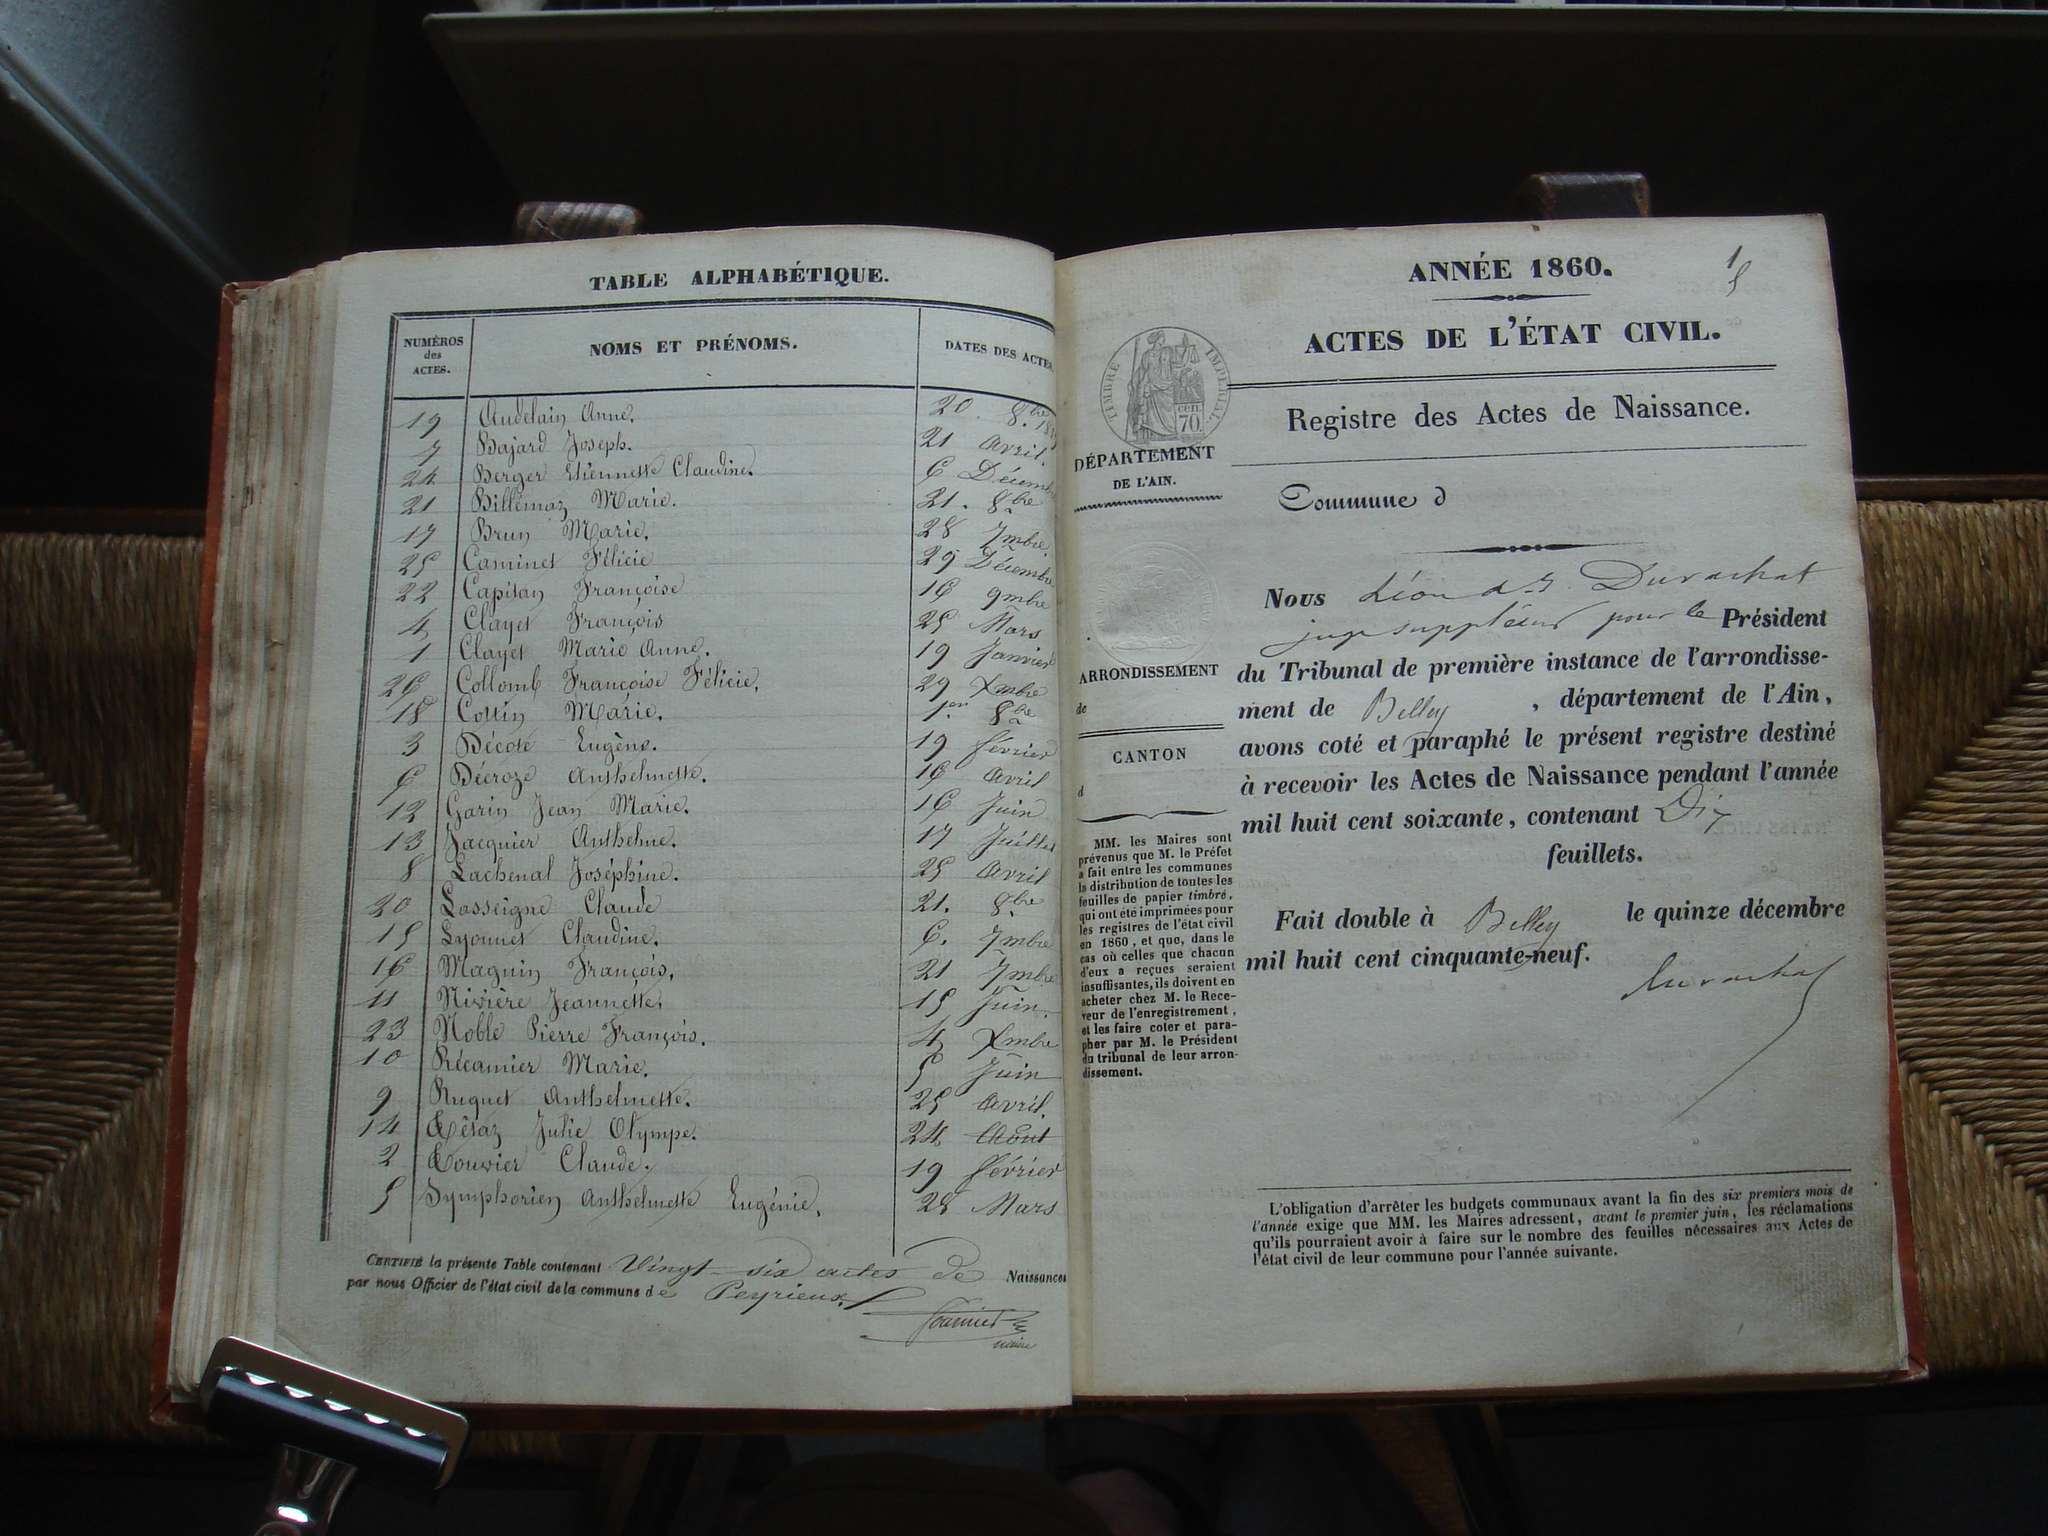 TABLE ALPHABÉTIQUE.
NUMÉROS des ACTES. NOMS ET PRÉNOMS. DATES DES ACTES
19 Audelain Anne. 20. 8.bre
7 Bajard Joseph. 21 Avril.
24 Berger Etiennette Claudine. 6 Décembre
21 Billemaz Marie. 21. 8bre
17 Brun Marie. 28 7mbre.
25 Caminet Félicie 29 Décembre
22 Capitan Françoise 16 9mbre
4 Clayet François 25 Mars
1 Clayet Marie Anne. 19 Janvier
26 Collomb Françoise Félicie. 29 Xmbre
18 Cottin Marie. 1er 8bre
3 Décote Eugène. 19 février
6 Décroze Anthelmette. 16 Avril
12 Garin Jean Marie. 16 Juin
13 Jacquier Anthelme. 17 Juillet
8 Lachenal Joséphine. 25 Avril
20 Lasseigne Claude 21. 8bre
15 Lyonnet Claudine. 6. 7mbre
16 Magnin François. 21 7mbre
11 Nivière Jeannette. 15 Juin.
23 Noble Pierre François. 4 Xmbre
10 Récamier Marie. 5 Juin
9 Ruguet Anthelmette. 25 Avril.
14 Tétaz Julie Olympe. 24 Août
2 Touvier Claude. 19 février
5 Symphorien Anthelmette Eugénie. 28 Mars
CERTIFIÉ la présente Table contenant Vingt-six actes de Naissances
par nous Officier de l'état civil de la commune de Peyrieux.
maire
ANNÉE 1860.
1
ACTES DE L'ÉTAT CIVIL.
TIMBRE IMPÉRIAL
cen. 70.
Registre des Actes de Naissance.
DÉPARTEMENT
DE L'AIN.
Commune d
ARRONDISSEMENT
de
CANTON
d
MM. les Maires sont
prévenus que M. le Préfet
a fait entre les communes
la distribution de toutes les
feuilles de papier timbré,
qui ont été imprimées pour
les registres de l'état civil
en 1860, et que, dans le
cas où celles que chacun
d'eux a reçues seraient
insuffisantes, ils doivent en
acheter chez M. le Rece-
veur de l'enregistrement,
et les faire coter et para-
pher par M. le Président
du tribunal de leur arron-
dissement.
Nous Léon Durachat
juge suppléant pour le Président
du Tribunal de première instance de l'arrondisse-
ment de Belley, département de l'Ain,
avons coté et paraphé le présent registre destiné
à recevoir les Actes de Naissance pendant l'année
mil huit cent soixante, contenant Dix
feuillets.
Fait double à Belley le quinze décembre
mil huit cent cinquante-neuf.
Durachat
L'obligation d'arrêter les budgets communaux avant la fin des six premiers mois de
l'année exige que MM. les Maires adressent, avant le premier juin, les réclamations
qu'ils pourraient avoir à faire sur le nombre des feuilles nécessaires aux Actes de
l'état civil de leur commune pour l'année suivante.